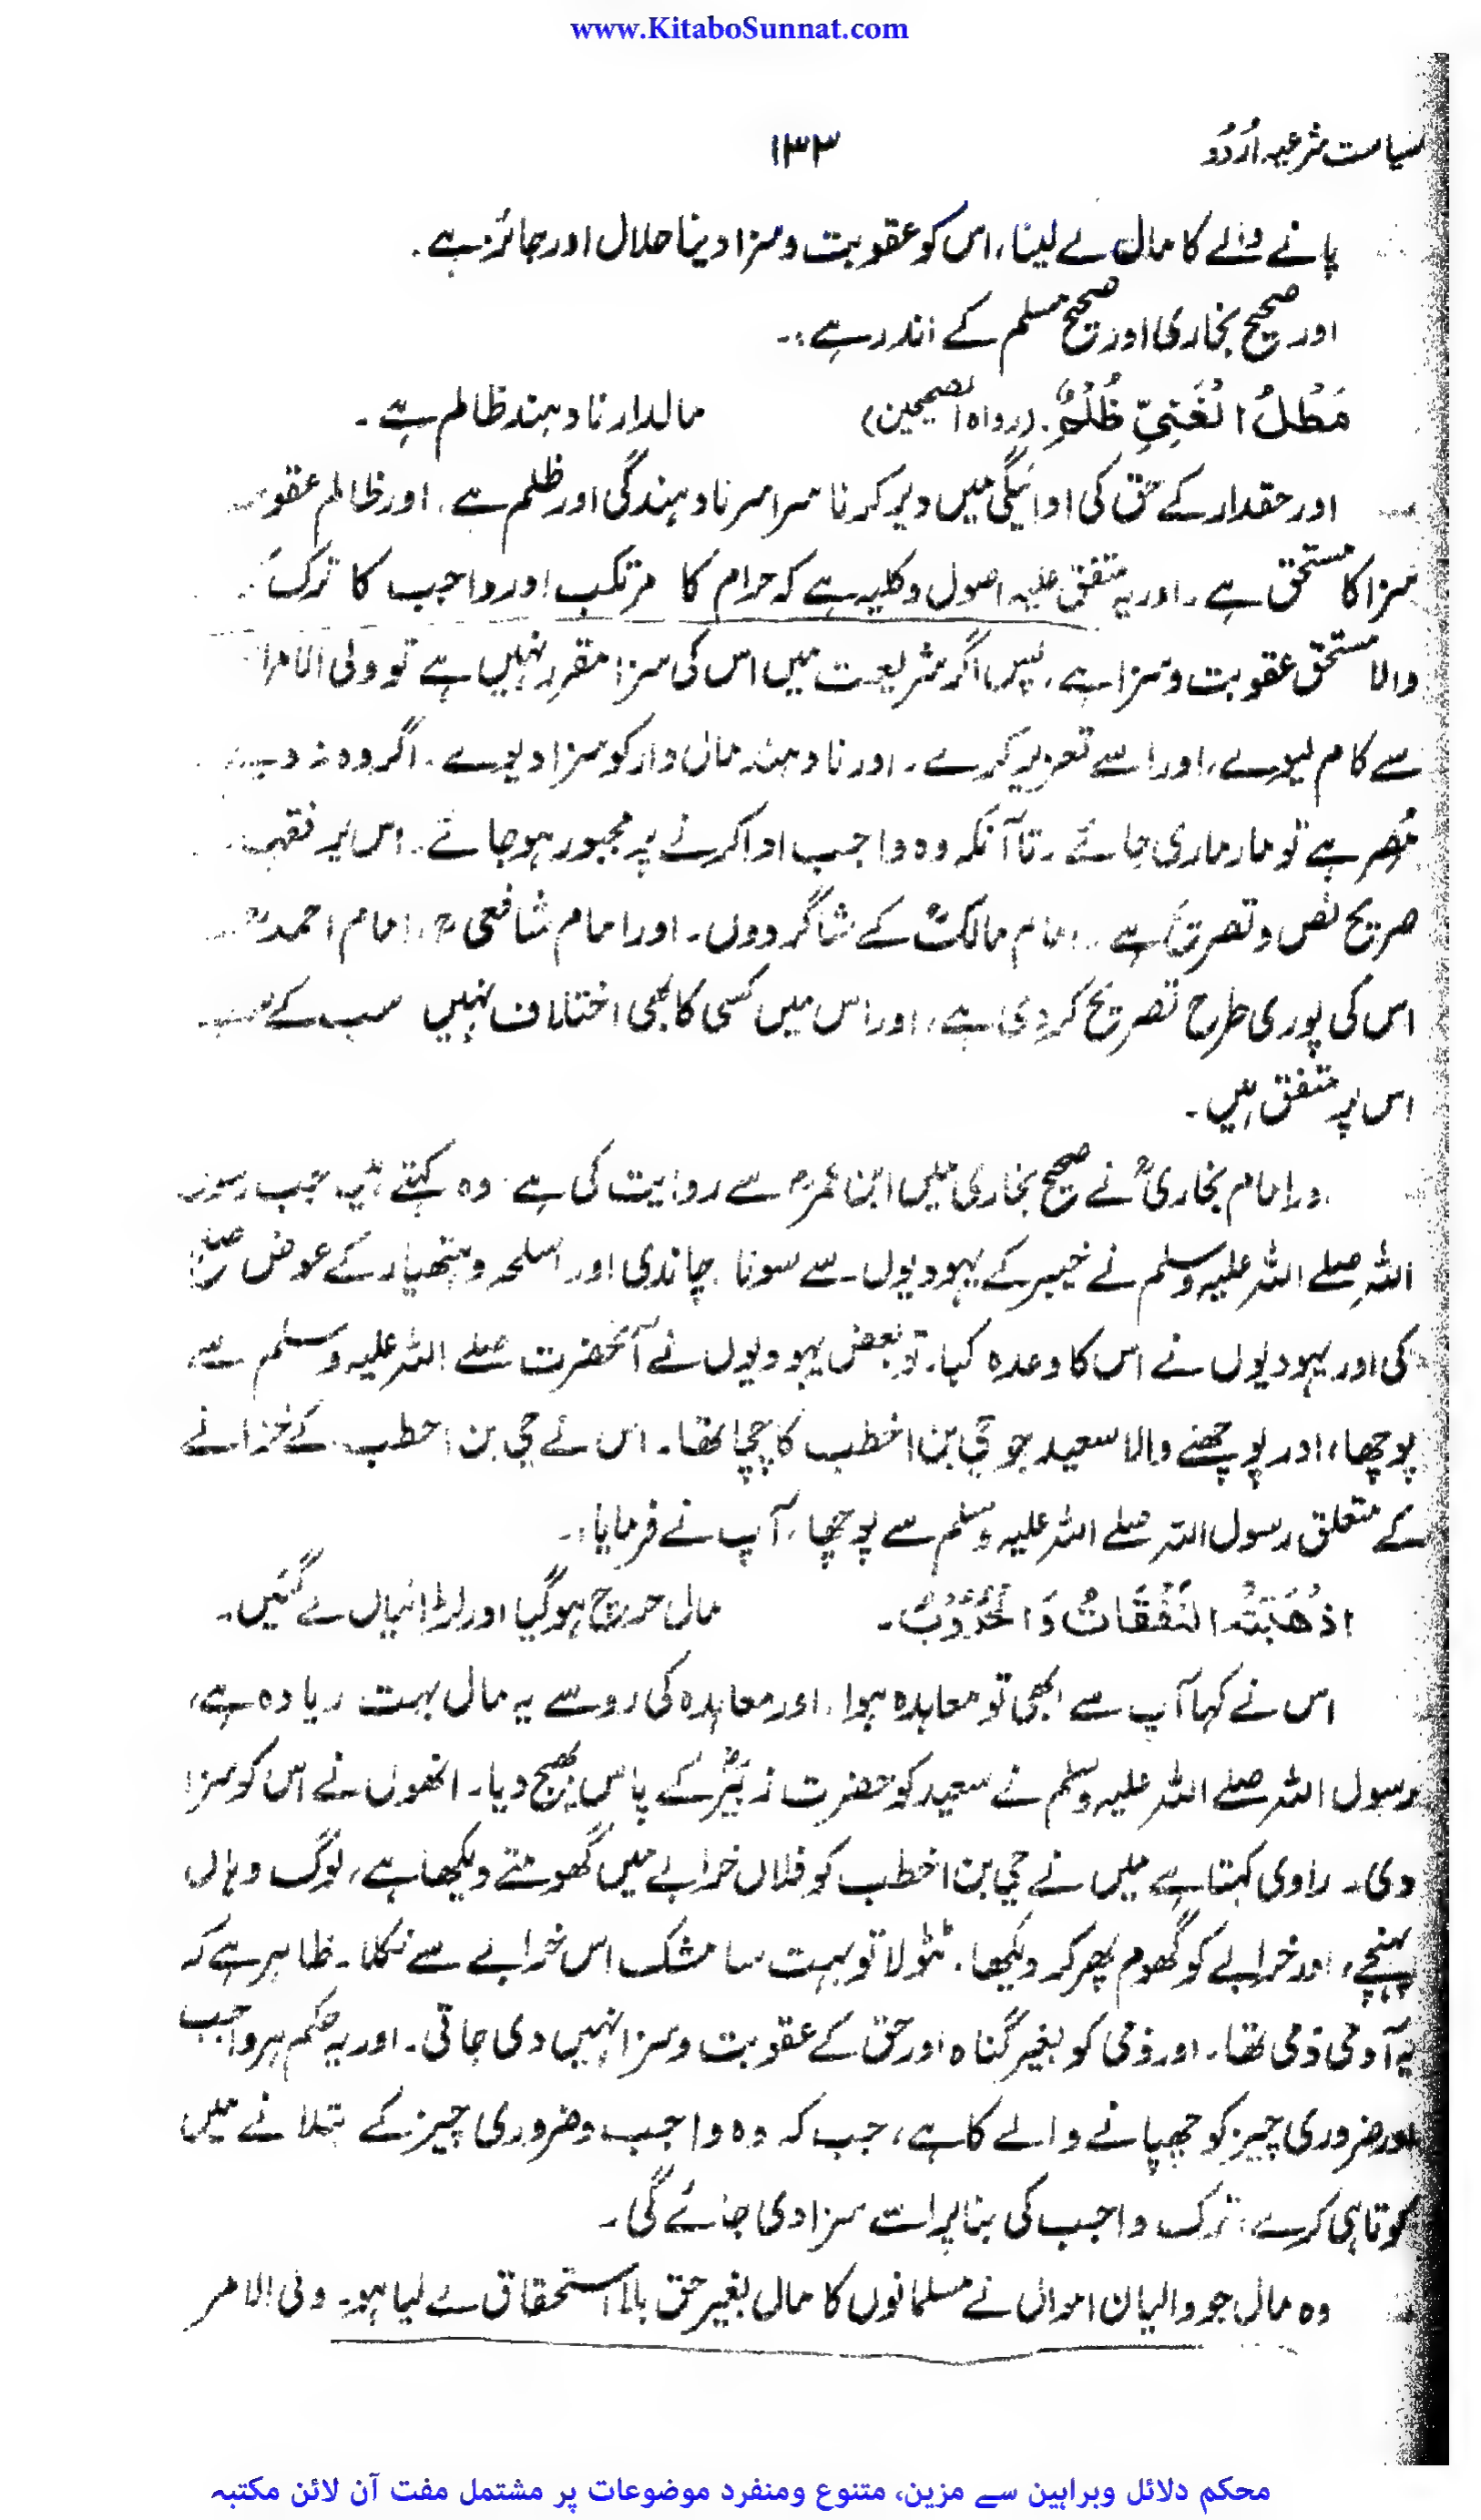 www.KitaboSunnat.com
سیاست شرعیہ اُردُو
۱۳۳
پانے والے کا مال لے لینا، اس کو عقوبت و سزا دینا حلال اور جائز ہے۔
اور صحیح بخاری اور صحیح مسلم کے اندر ہے:۔
مَطْلُ الْغَنِیِّ ظُلْمٌ. (رواہ الصحیحین)
مالدار نادہند ظالم ہے۔
اور حقدار کے حق کی ادائیگی میں دیر کرنا سراسر نادہندگی اور ظلم ہے۔ اور ظالم
سزا کا مستحق ہے۔ اور یہ متفق علیہ اصول و کلیہ ہے کہ حرام کا مرتکب اور واجب کا ترک
والا مستحق عقوبت و سزا ہے، پس اگر شریعت میں اس کی سزا مقرر نہیں ہے تو ولی الامر
سے کام لیوے، اور اسے تعزیر کرے۔ اور نادہند مال دار کو سزا دیوے۔ اگر وہ نہ
مُصر ہے تو مار ماری جائے۔ تاآنکہ وہ واجب ادا کرنے پر مجبور ہو جائے۔ اس پر
صریح نص و تصریح ہے۔ امام مالکؒ کے شاگردوں۔ اور امام شافعیؒ، امام احمدؒ
اس کی پوری طرح تصریح کردی ہے، اور اس میں کسی کا بھی اختلاف نہیں سب کے سب
اس پر متفق ہیں۔
اور امام بخاریؒ نے صحیح بخاری میں ابن عمرؓ سے روایت کی ہے۔ وہ کہتے ہیں جب رسول
اللہ صلے اللہ علیہ وسلم نے خیبر کے یہودیوں سے سونا، چاندی اور اسلحہ و ہتھیار کے عوض صلح
کی اور یہودیوں نے اس کا وعدہ کیا۔ تو بعض یہودیوں نے آنحضرت صلے اللہ علیہ وسلم سے
پوچھا، اور پوچھنے والا سعید جو حیی بن اخطب کا چچا تھا۔ اس نے حیی بن اخطب کے خزانے
کے متعلق رسول اللہ صلے اللہ علیہ وسلم سے پوچھا، آپ نے فرمایا:۔
اَذْهَبَتْهُ النَّفَقَاتُ وَالْحُرُوْبُ۔
مال خرچ ہوگیا اور لڑائیاں لے گئیں۔
اس نے کہا آپ سے ابھی تو معاہدہ ہوا، اور معاہدہ کی رو سے یہ مال بہت زیادہ ہے،
رسول اللہ صلے اللہ علیہ وسلم نے سعید کو حضرت زبیرؓ کے پاس بھیج دیا۔ انھوں نے اس کو سزا
دی۔ راوی کہتا ہے میں نے حیی بن اخطب کو فلاں خرابے میں گھومتے دیکھا ہے، لوگ وہاں
پہنچے، اور خرابے کو گھوم پھر کر دیکھا۔ ٹٹولا تو بہت سا مشک اس خرابے سے نکلا۔ ظاہر ہے کہ
یہ آدمی ذمی تھا۔ اور ذمی کو بغیر گناہ اور حق کے عقوبت و سزا نہیں دی جاتی۔ اور یہ حکم ہر واجب
اور ضروری چیز کو چھپانے والے کا ہے، جب کہ وہ واجب و ضروری چیز کے بتلانے میں
کوتاہی کرے، ترک واجب کی بنا پر اسے سزا دی جائے گی۔
وہ مال جو والیان اموال نے مسلمانوں کا مال بغیر حق بلا استحقاق لے لیا ہو۔ ولی الامر
محکم دلائل وبراہین سے مزین، متنوع ومنفرد موضوعات پر مشتمل مفت آن لائن مکتبہ